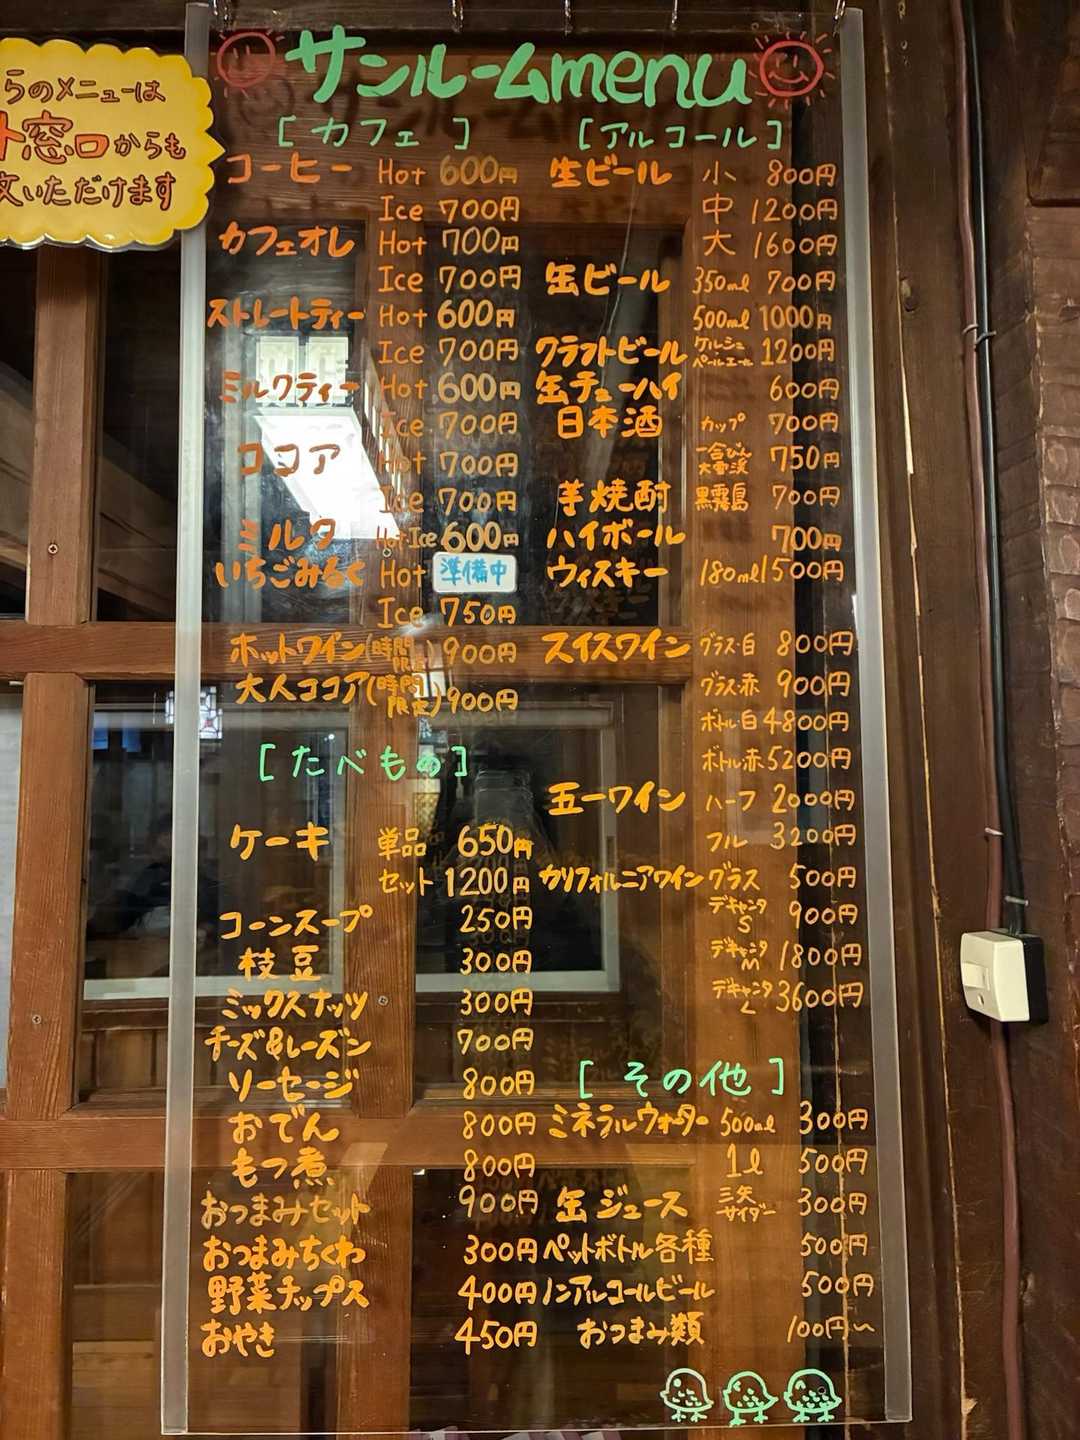 らのメニューは
外窓口からも
文いただけます
サンルームmenu
[カフェ]
コーヒー Hot 600円
Ice 700円
カフェオレ Hot 700円
Ice 700円
ストレートティー Hot 600円
Ice 700円
ミルクティー Hot 600円
Ice 700円
ココア Hot 700円
Ice 700円
ミルク Hot・Ice 600円
いちごみるく Hot 準備中
Ice 750円
ホットワイン(時間限定) 900円
大人ココア(時間限定) 900円
[たべもの]
ケーキ 単品 650円
セット 1200円
コーンスープ 250円
枝豆 300円
ミックスナッツ 300円
チーズ&レーズン 700円
ソーセージ 800円
おでん 800円
もつ煮 800円
おつまみセット 900円
おつまみちくわ 300円
野菜チップス 400円
おやき 450円
[アルコール]
生ビール 小 800円
中 1200円
大 1600円
缶ビール 350ml 700円
500ml 1000円
クラフトビール ケルシュ ペールエール 1200円
缶チューハイ 600円
日本酒 カップ 700円
一合びん 大雪渓 750円
芋焼酎 黒霧島 700円
ハイボール 700円
ウィスキー 180ml 1500円
スイスワイン グラス・白 800円
グラス・赤 900円
ボトル・白 4800円
ボトル・赤 5200円
五一ワイン ハーフ 2000円
フル 3200円
カリフォルニアワイン グラス 500円
デキャンタ S 900円
デキャンタ M 1800円
デキャンタ L 3600円
[その他]
ミネラルウォーター 500ml 300円
1l 500円
缶ジュース 三矢サイダー 300円
ペットボトル各種 500円
ノンアルコールビール 500円
おつまみ類 100円〜